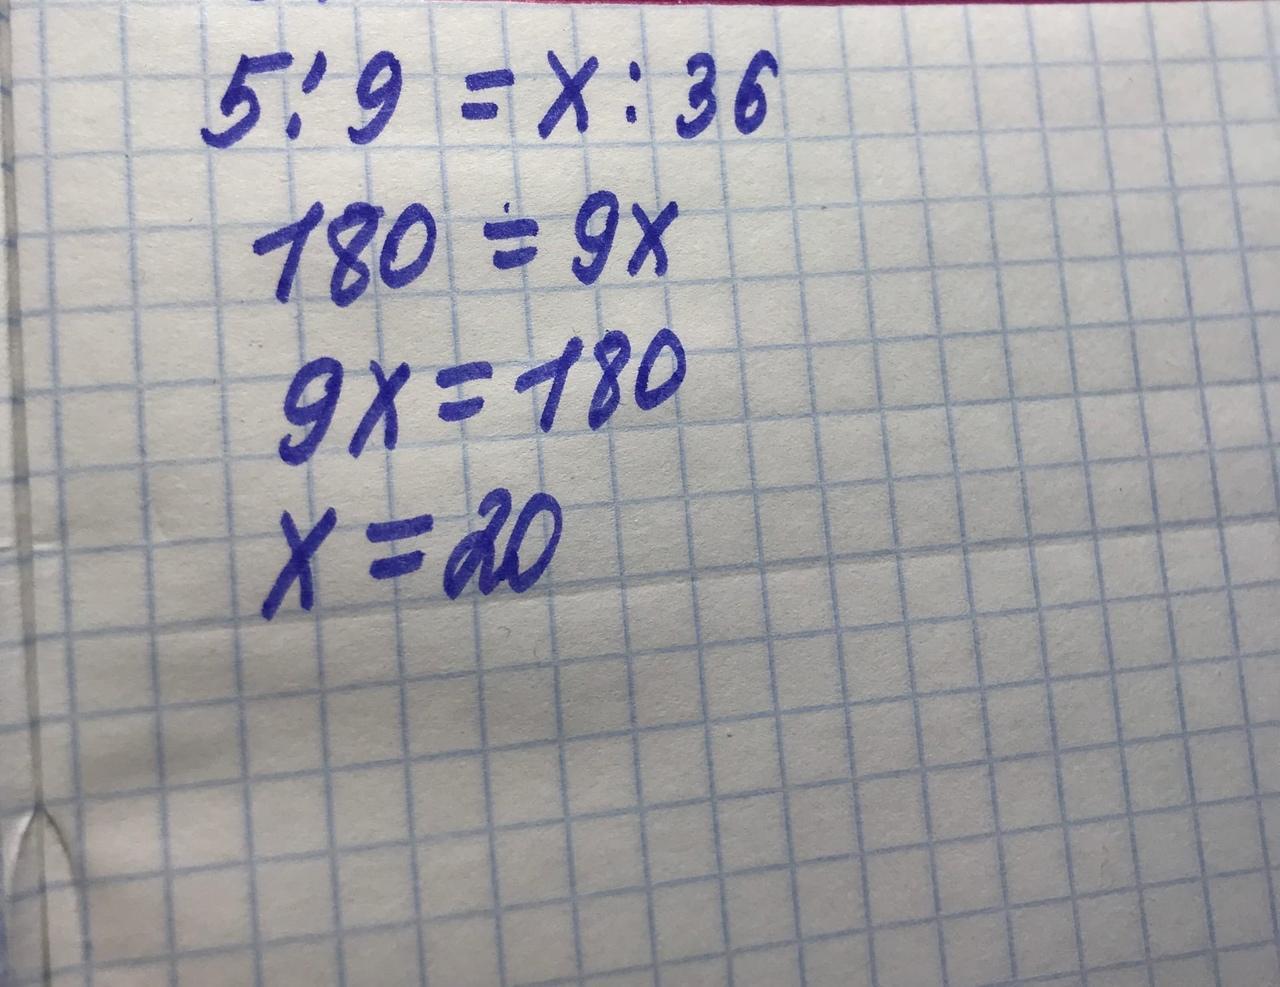 5:9 = x:36
180 = 9x
9x = 180
x = 20